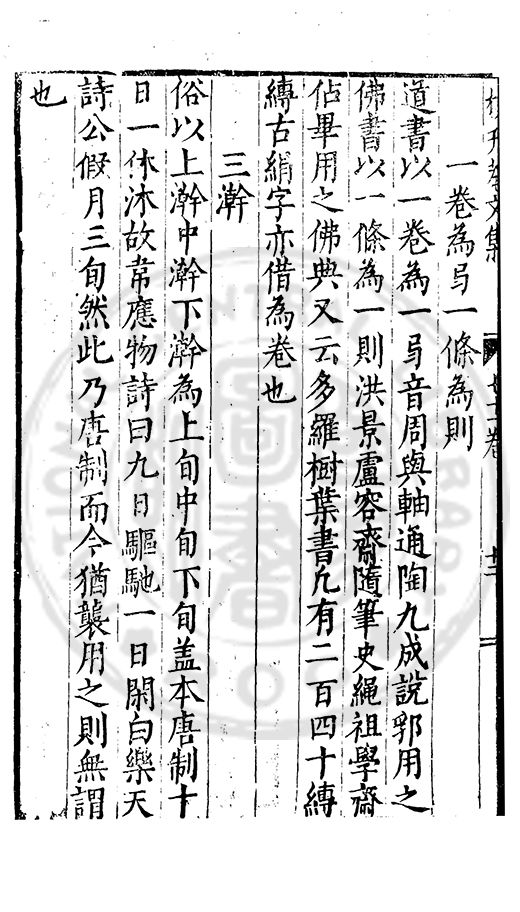 一卷為弓一條為則
道書以一卷為一弓音周與軸通陶九成說郛用之
佛書以一條為一則洪景盧容齋隨筆史繩祖學齋
佔畢用之佛典又云多羅樹葉書凢有二百四十縳
縳古絹字亦借為卷也
三澣
俗以上澣中澣下澣為上旬中旬下旬盖本唐制十
日一休沐故常應物詩曰九日驅馳一日閑白樂天
詩公假月三旬然此乃唐制而今猶襲用之則無謂
也